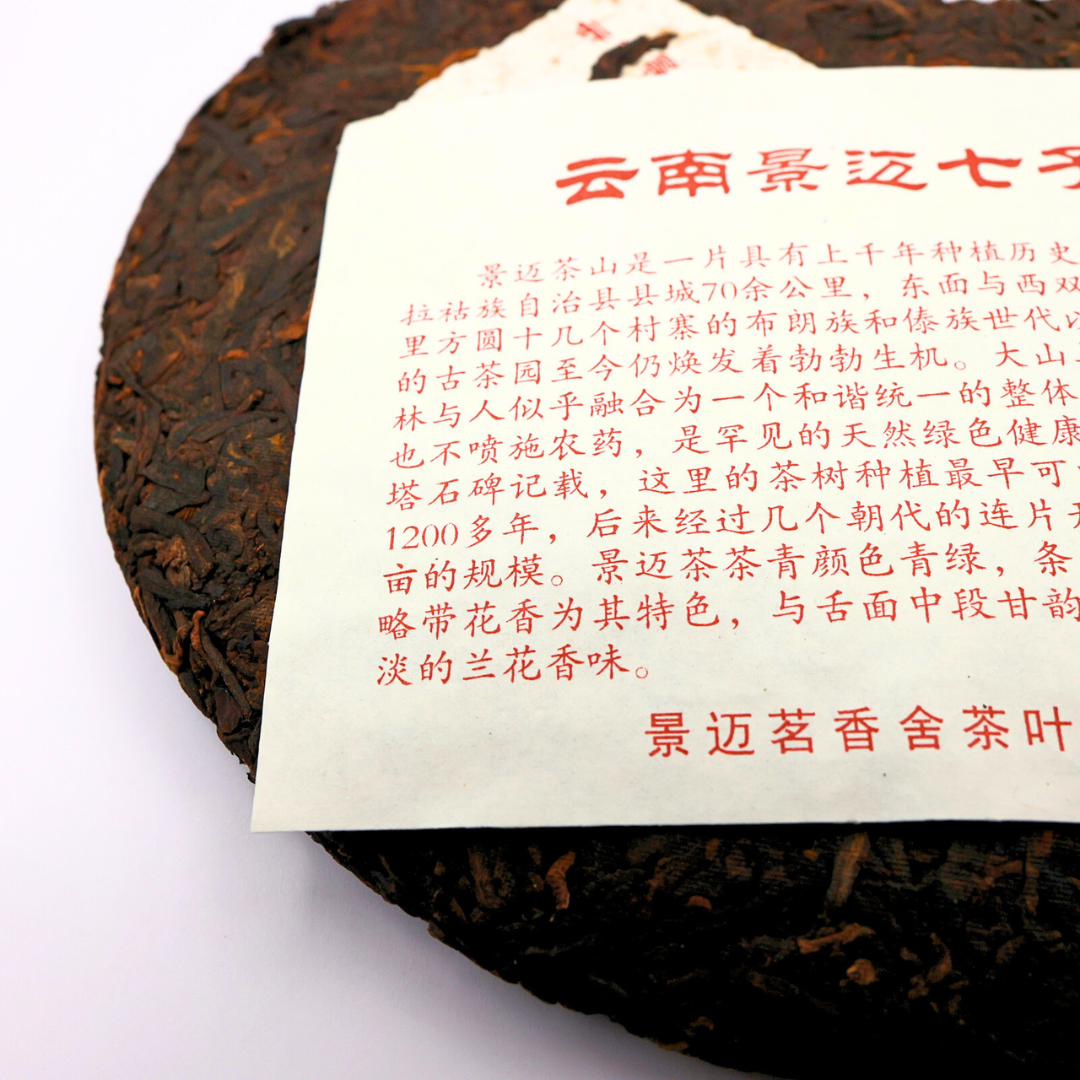 云南景迈七子
景迈茶山是一片具有上千年种植历史
拉祜族自治县县城70余公里，东面与西双
里方圆十几个村寨的布朗族和傣族世代以
的古茶园至今仍焕发着勃勃生机。大山与
林与人似乎融合为一个和谐统一的整体
也不喷施农药，是罕见的天然绿色健康
塔石碑记载，这里的茶树种植最早可
1200多年，后来经过几个朝代的连片开
亩的规模。景迈茶茶青颜色青绿，条
略带花香为其特色，与舌面中段甘韵
淡的兰花香味。
景迈茗香舍茶叶